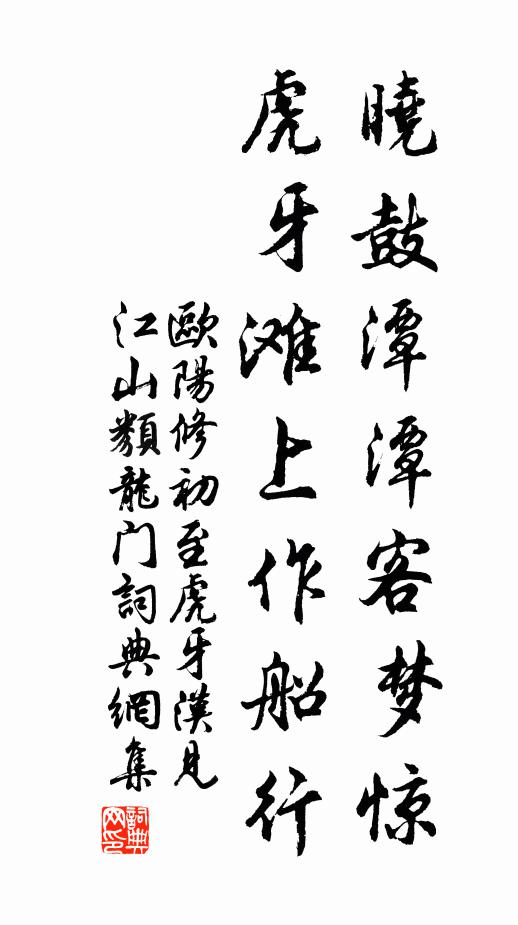 曉鼓潭潭客梦惊
虎牙滩上作船行
歐陽修初至虎牙漢見
江山類龍门詞典網集
詞典网印